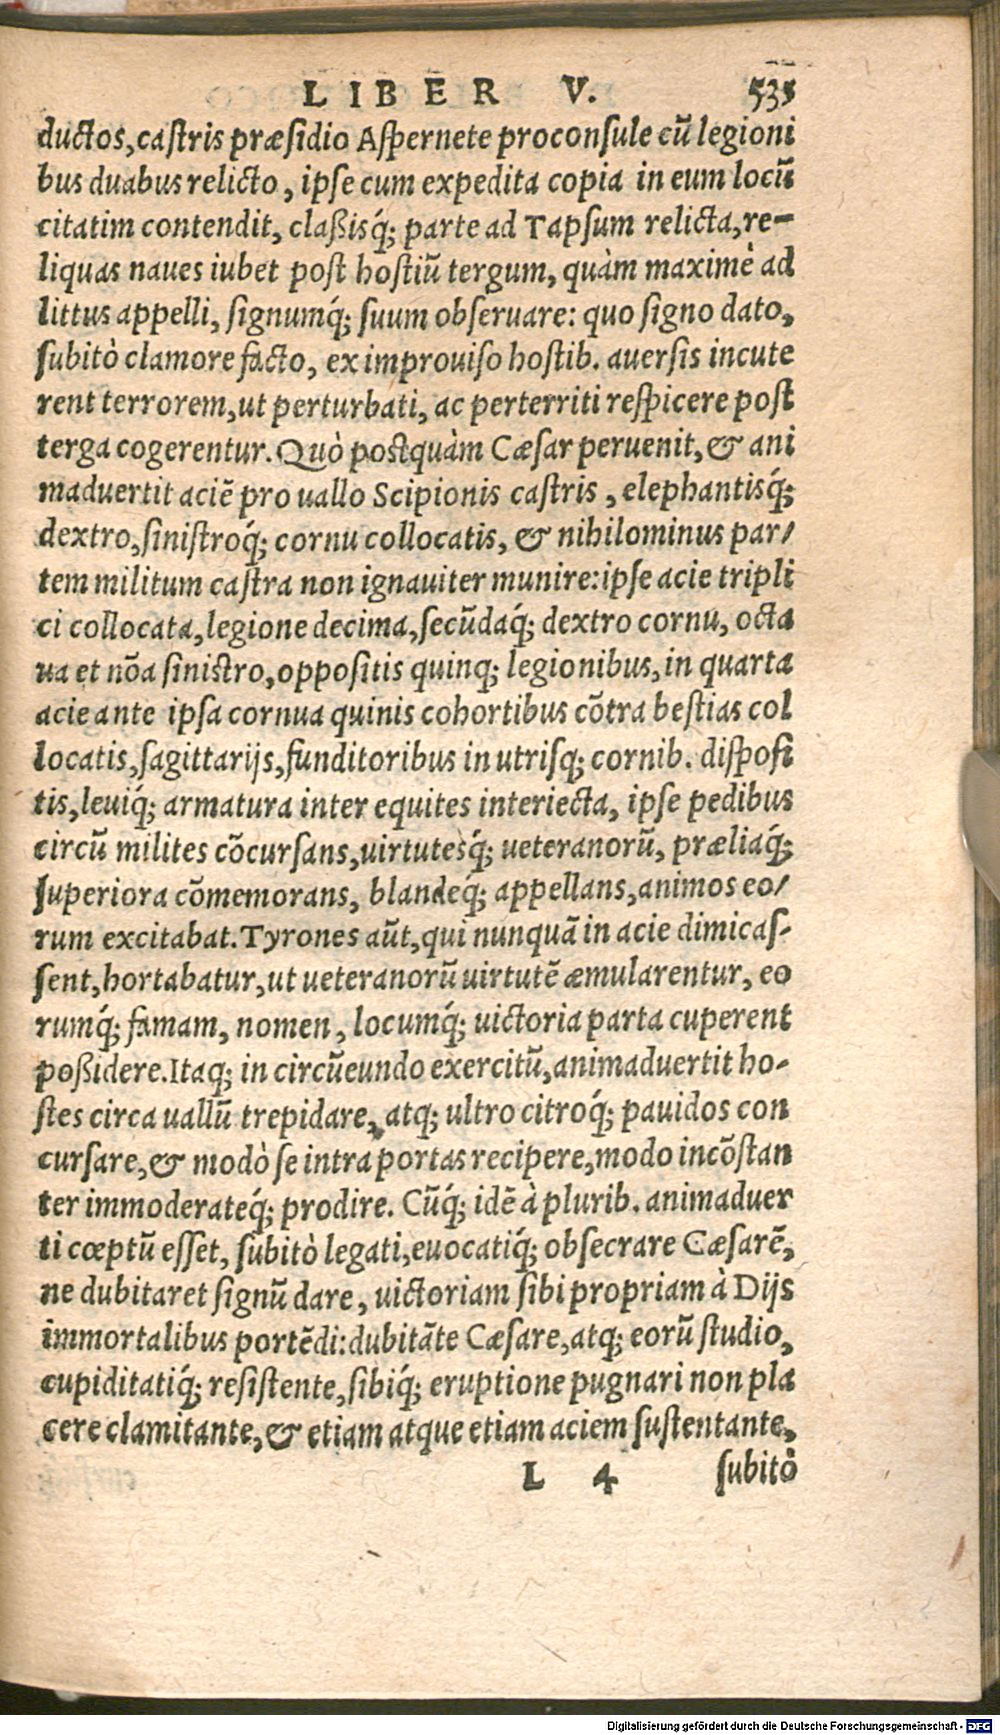 LIBER V. 535
ductos, castris præsidio Aspernete proconsule cū legioni
bus duabus relicto, ipse cum expedita copia in eum locū
citatim contendit, claßisq́; parte ad Tapsum relicta, re-
liquas naues iubet post hostiū tergum, quàm maximè ad
littus appelli, signumq́; suum obseruare: quo signo dato,
subitò clamore facto, ex improuiso hostib. auersis incute
rent terrorem, ut perturbati, ac perterriti respicere post
terga cogerentur. Quò postquàm Cæsar peruenit, & ani
maduertit aciē pro uallo Scipionis castris, elephantisq́;
dextro, sinistroq́; cornu collocatis, & nihilominus par/
tem militum castra non ignauiter munire: ipse acie tripli
ci collocata, legione decima, secūdaq́; dextro cornu, octa
ua et nōa sinistro, oppositis quinq; legionibus, in quarta
acie ante ipsa cornua quinis cohortibus cōtra bestias col
locatis, sagittarijs, funditoribus in utrisq; cornib. disposi
tis, leuiq́; armatura inter equites interiecta, ipse pedibus
circū milites cōcursans, uirtutesq́; ueteranorū, præliaq́;
superiora cōmemorans, blandeq́; appellans, animos eo/
rum excitabat. Tyrones aūt, qui nunquā in acie dimicas-
sent, hortabatur, ut ueteranorū uirtutē æmularentur, eo
rumq́; famam, nomen, locumq́; uictoria parta cuperent
poßidere. Itaq; in circūeundo exercitū, animaduertit ho-
stes circa uallū trepidare, atq; ultro citroq́; pauidos con
cursare, & modò se intra portas recipere, modo incōstan
ter immoderateq́; prodire. Cūq́; idē à plurib. animaduer
ti cœptū esset, subitò legati, euocatiq́; obsecrare Cæsarē,
ne dubitaret signū dare, uictoriam sibi propriam à Dijs
immortalibus portēdi: dubitāte Cæsare, atq; eorū studio,
cupiditatiq́; resistente, sibiq́; eruptione pugnari non pla
cere clamitante, & etiam atque etiam aciem sustentante,
L 4 subitò
Digitalisierung gefördert durch die Deutsche Forschungsgemeinschaft - DFG